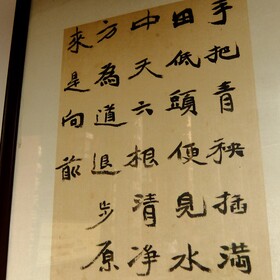 手把青秧插滿
田低頭便見水
中天六根清淨
方為道退步原
來是向前